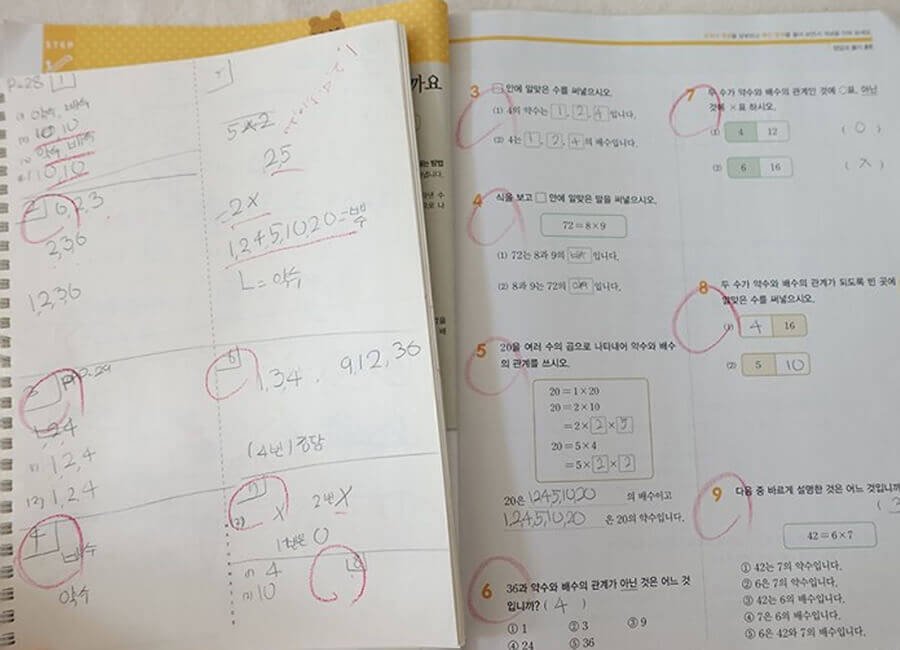 STEP
까요
P-28 1
(1) 약수, 배수
(2) 10, 10
약수 배수
10, 10
2 6, 2, 3
2, 3, 6
1, 2, 3, 6
3 P-29
1, 2, 4
(1) 1, 2, 4
(2) 1, 2, 4
4
배수
약수
5
5×2
25
=2×
1, 2, 4, 5, 10, 20 = 배수
약수
6
1, 3, 4 . 9, 12, 36
(4번) 정답
7
(2) X 2번 X
1번은 O
8
(1) 4
(2) 10
정답과 풀이
3 □ 안에 알맞은 수를 써넣으시오.
(1) 4의 약수는 1, 2, 4 입니다.
(2) 4는 1, 2, 4 의 배수입니다.
4 식을 보고 □ 안에 알맞은 말을 써넣으시오.
72=8×9
(1) 72는 8과 9의 배수 입니다.
(2) 8과 9는 72의 약수 입니다.
5 20을 여러 수의 곱으로 나타내어 약수와 배수
의 관계를 쓰시오.
20=1×20
20=2×10
=2×2×5
20=5×4
=5×2×2
20은 1,2,4,5,10,20 의 배수이고
1,2,4,5,10,20 은 20의 약수입니다.
6 36과 약수와 배수의 관계가 아닌 것은 어느 것
입니까? ( 4 )
① 1 ② 3 ③ 9
④ 24 ⑤ 36
7 두 수가 약수와 배수의 관계인 것에 ○표, 아닌
것에 ×표 하시오.
(1) 4 12 ( O )
(2) 6 16 ( X )
8 두 수가 약수와 배수의 관계가 되도록 빈 곳에
알맞은 수를 써넣으시오.
(1) 4 16
(2) 5 10
9 다음 중 바르게 설명한 것은 어느 것입니까
42=6×7
① 42는 7의 약수입니다.
② 6은 7의 약수입니다.
③ 42는 6의 배수입니다.
④ 7은 6의 배수입니다.
⑤ 6은 42와 7의 배수입니다.